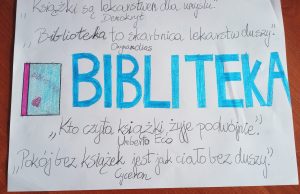 „Książki są lekarstwem dla umysłu."
Demokryt
„Biblioteka to skarbnica lekarstw duszy."
Osymandias
BIBLITEKA
„Kto czyta książki, żyje podwójnie."
Umberto Eco
„Pokój bez książek jest jak ciało bez duszy."
Cyceron